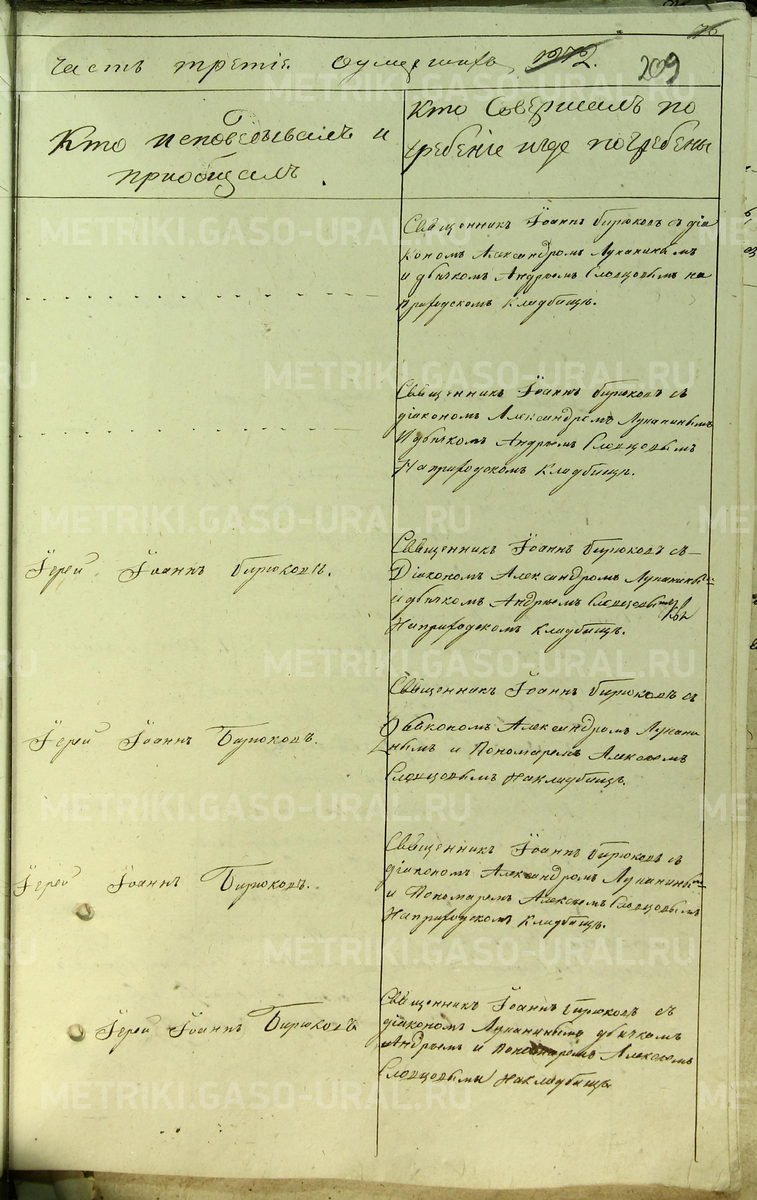 76
часть третiе о умершихъ 1872.
209
Кто исповѣдывалъ и
приобщалъ.
Кто Совершалъ по
гребенiе и где погребены
Священникъ Iоаннъ Бирюковъ съ дiа
кономъ Александромъ Лунанинымъ
и дьячкомъ Андрѣемъ Словцовымъ на
приходскомъ кладбищѣ.
Священникъ Iоаннъ Бирюковъ съ
дiакономъ Александромъ Лунанинымъ
и дьячкомъ Андрѣемъ Словцовымъ
На приходскомъ кладбищѣ.
Iерей Iоаннъ Бирюковъ.
Священникъ Iоаннъ Бирюковъ съ
Дiакономъ Александромъ Лунанины
и дьячкомъ Андрѣемъ Словцовымъ
На приходскомъ кладбищѣ.
Iерей Iоаннъ Бирюковъ.
Священникъ Iоаннъ Бирюковъ съ
Дьякономъ Александромъ Лунани
нымъ и Пономаремъ Алексѣемъ
Словцовымъ на кладбищѣ.
Iерей Iоаннъ Бирюковъ.
Священникъ Iоаннъ Бирюковъ съ
дiакономъ Александромъ Лунанины
и Пономаремъ Алексѣемъ Словцовымъ
На приходскомъ кладбищѣ.
Iерей Iоаннъ Бирюковъ
Священникъ Iоаннъ Бирюковъ съ
дiакономъ Лунанинымъ дьячкомъ
Андрѣемъ и Пономаремъ Алексѣемъ
Словцовыми на кладбищѣ
METRIKI.GASO-URAL.RU